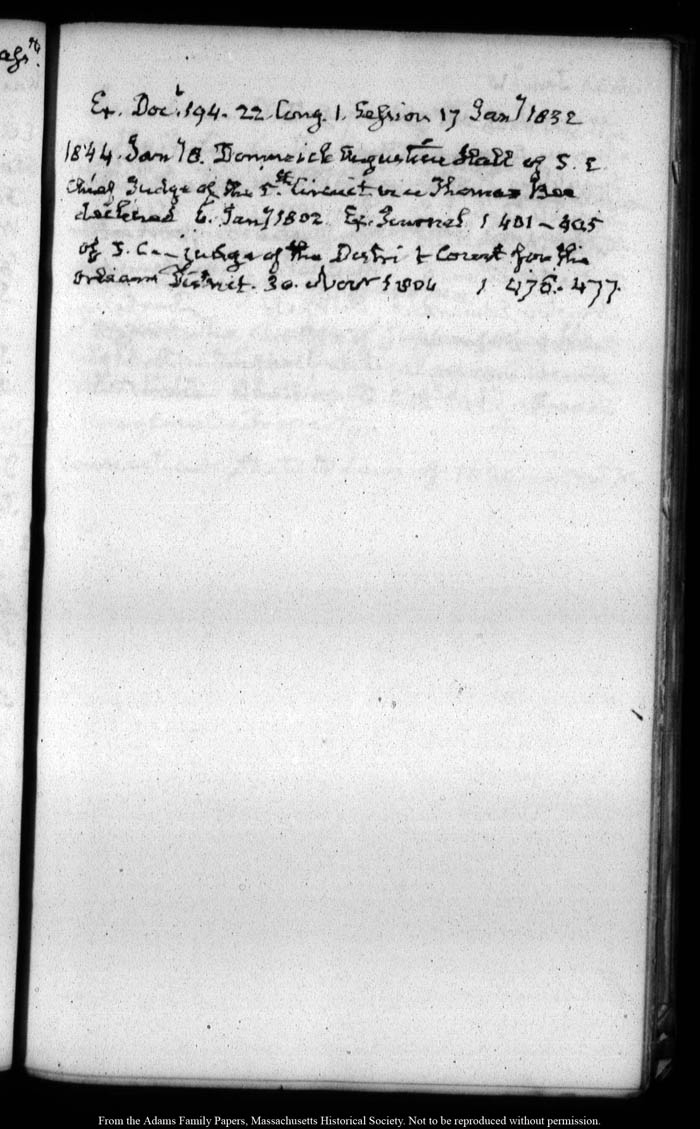 Ex. Doct. 194. 22. Cong. 1. Session 17 Jany 1832
1844. Jany 8. Dominick Augustine Hall of S. C
chief Judge of the 5th Circuit vice Thomas Bee
declined 6. Jany 1802 Ex. Journal 1 401–405
of S. C— judge of the District Court for the
Orleans District. 30. Novr 1804 1 476–477.
From the Adams Family Papers, Massachusetts Historical Society. Not to be reproduced without permission.